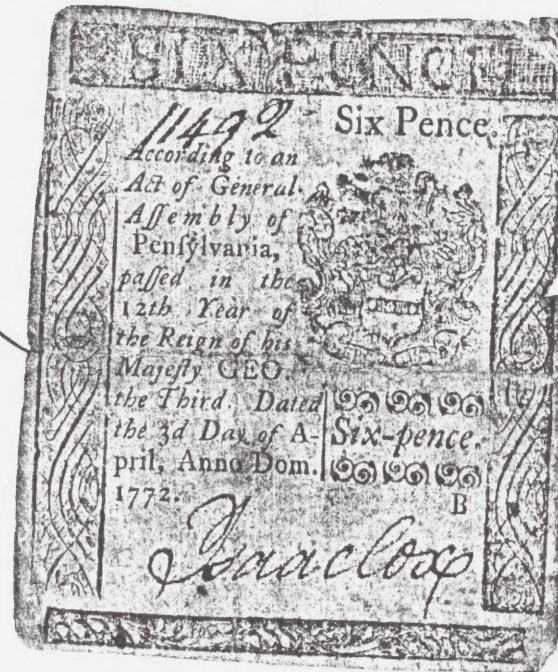 SIX PENCE
11492 Six Pence.
According to an
Act of General
Aſſembly of
Penſylvania,
paſſed in the
12th Year of
the Reign of his
Majeſty GEO.
the Third. Dated
the 3d Day of A-
pril, Anno Dom.
1772.
Six-pence.
B
Isaac Cox